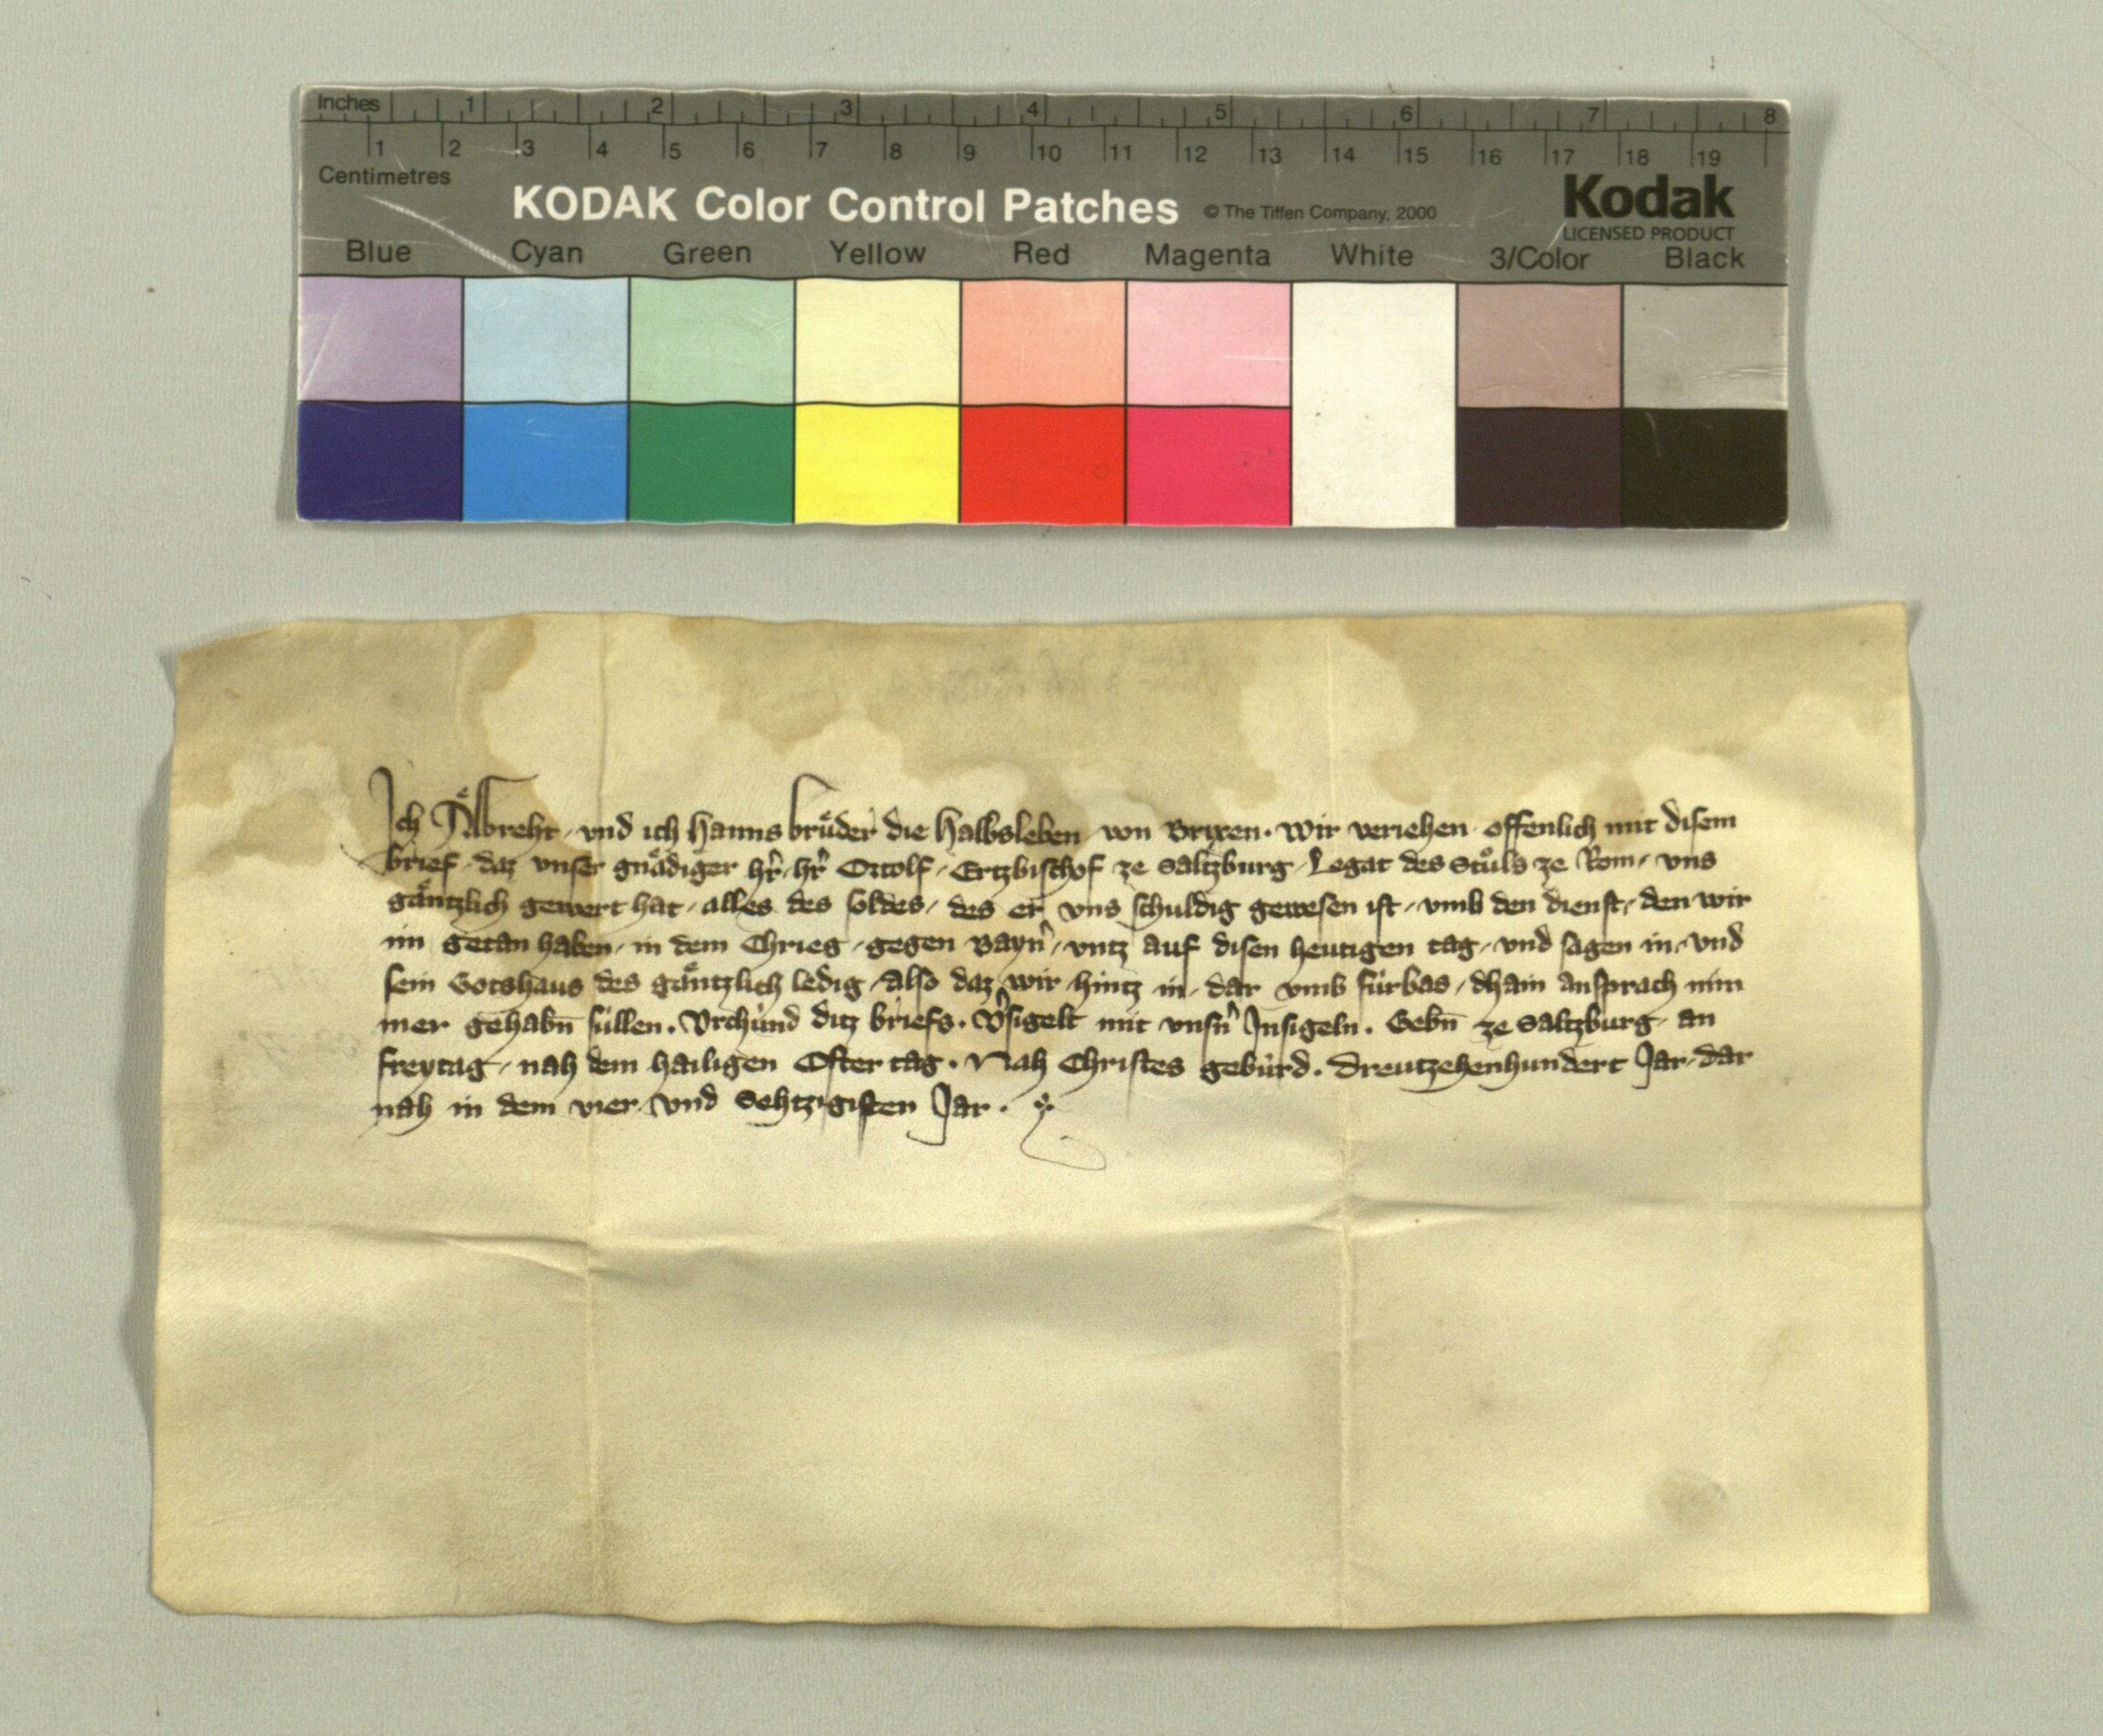 Inches 1 2 3 4 5 6 7 8
1 2 3 4 5 6 7 8 9 10 11 12 13 14 15 16 17 18 19
Centimetres
KODAK Color Control Patches © The Tiffen Company, 2000 Kodak
LICENSED PRODUCT
Blue Cyan Green Yellow Red Magenta White 3/Color Black
Ich Aͤlbreht, vnd ich Hanns bruͤder die Halbsleben von Brixen. Wir veriehen offenlich mit disem
brief, daz vnser gnaͤdiger hr̄, hr̄ Ortolf, Ertzbischof ze Saltzburg, Legat des Stuͦls ze Rom, vns
gaͤntzlich gewert hat, alles des soldes, des er vns schuldig gewesen ist, vmb den dienst, den wir
im getan haben, in dem Chrieg, gegen Bayrn̄, vntz auf disen heutigen tag, vnd sagen in, vnd
sein Gotshaus des gaͤntzlich ledig, Also daz wir hintz in, dar vmb fuͤrbas, dhain ansprach nim
mer gehabn̄ suͤllen. Vrchuͤnd ditz briefs. Vˀsigelt mit vnsn̄ Insigeln. Gebn̄ ze Saltzburg, an
freytag, nah dem hailigen Oster tag. Nah Christes gebuͤrd. Dreutzehenhundert Jar, dar
nah in dem vier vnd Sehtzigisten Jar.